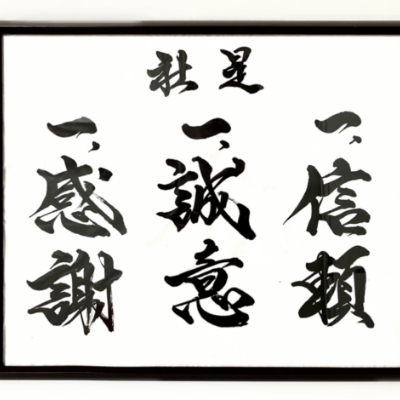 社是
一、信頼
一、誠意
一、感謝